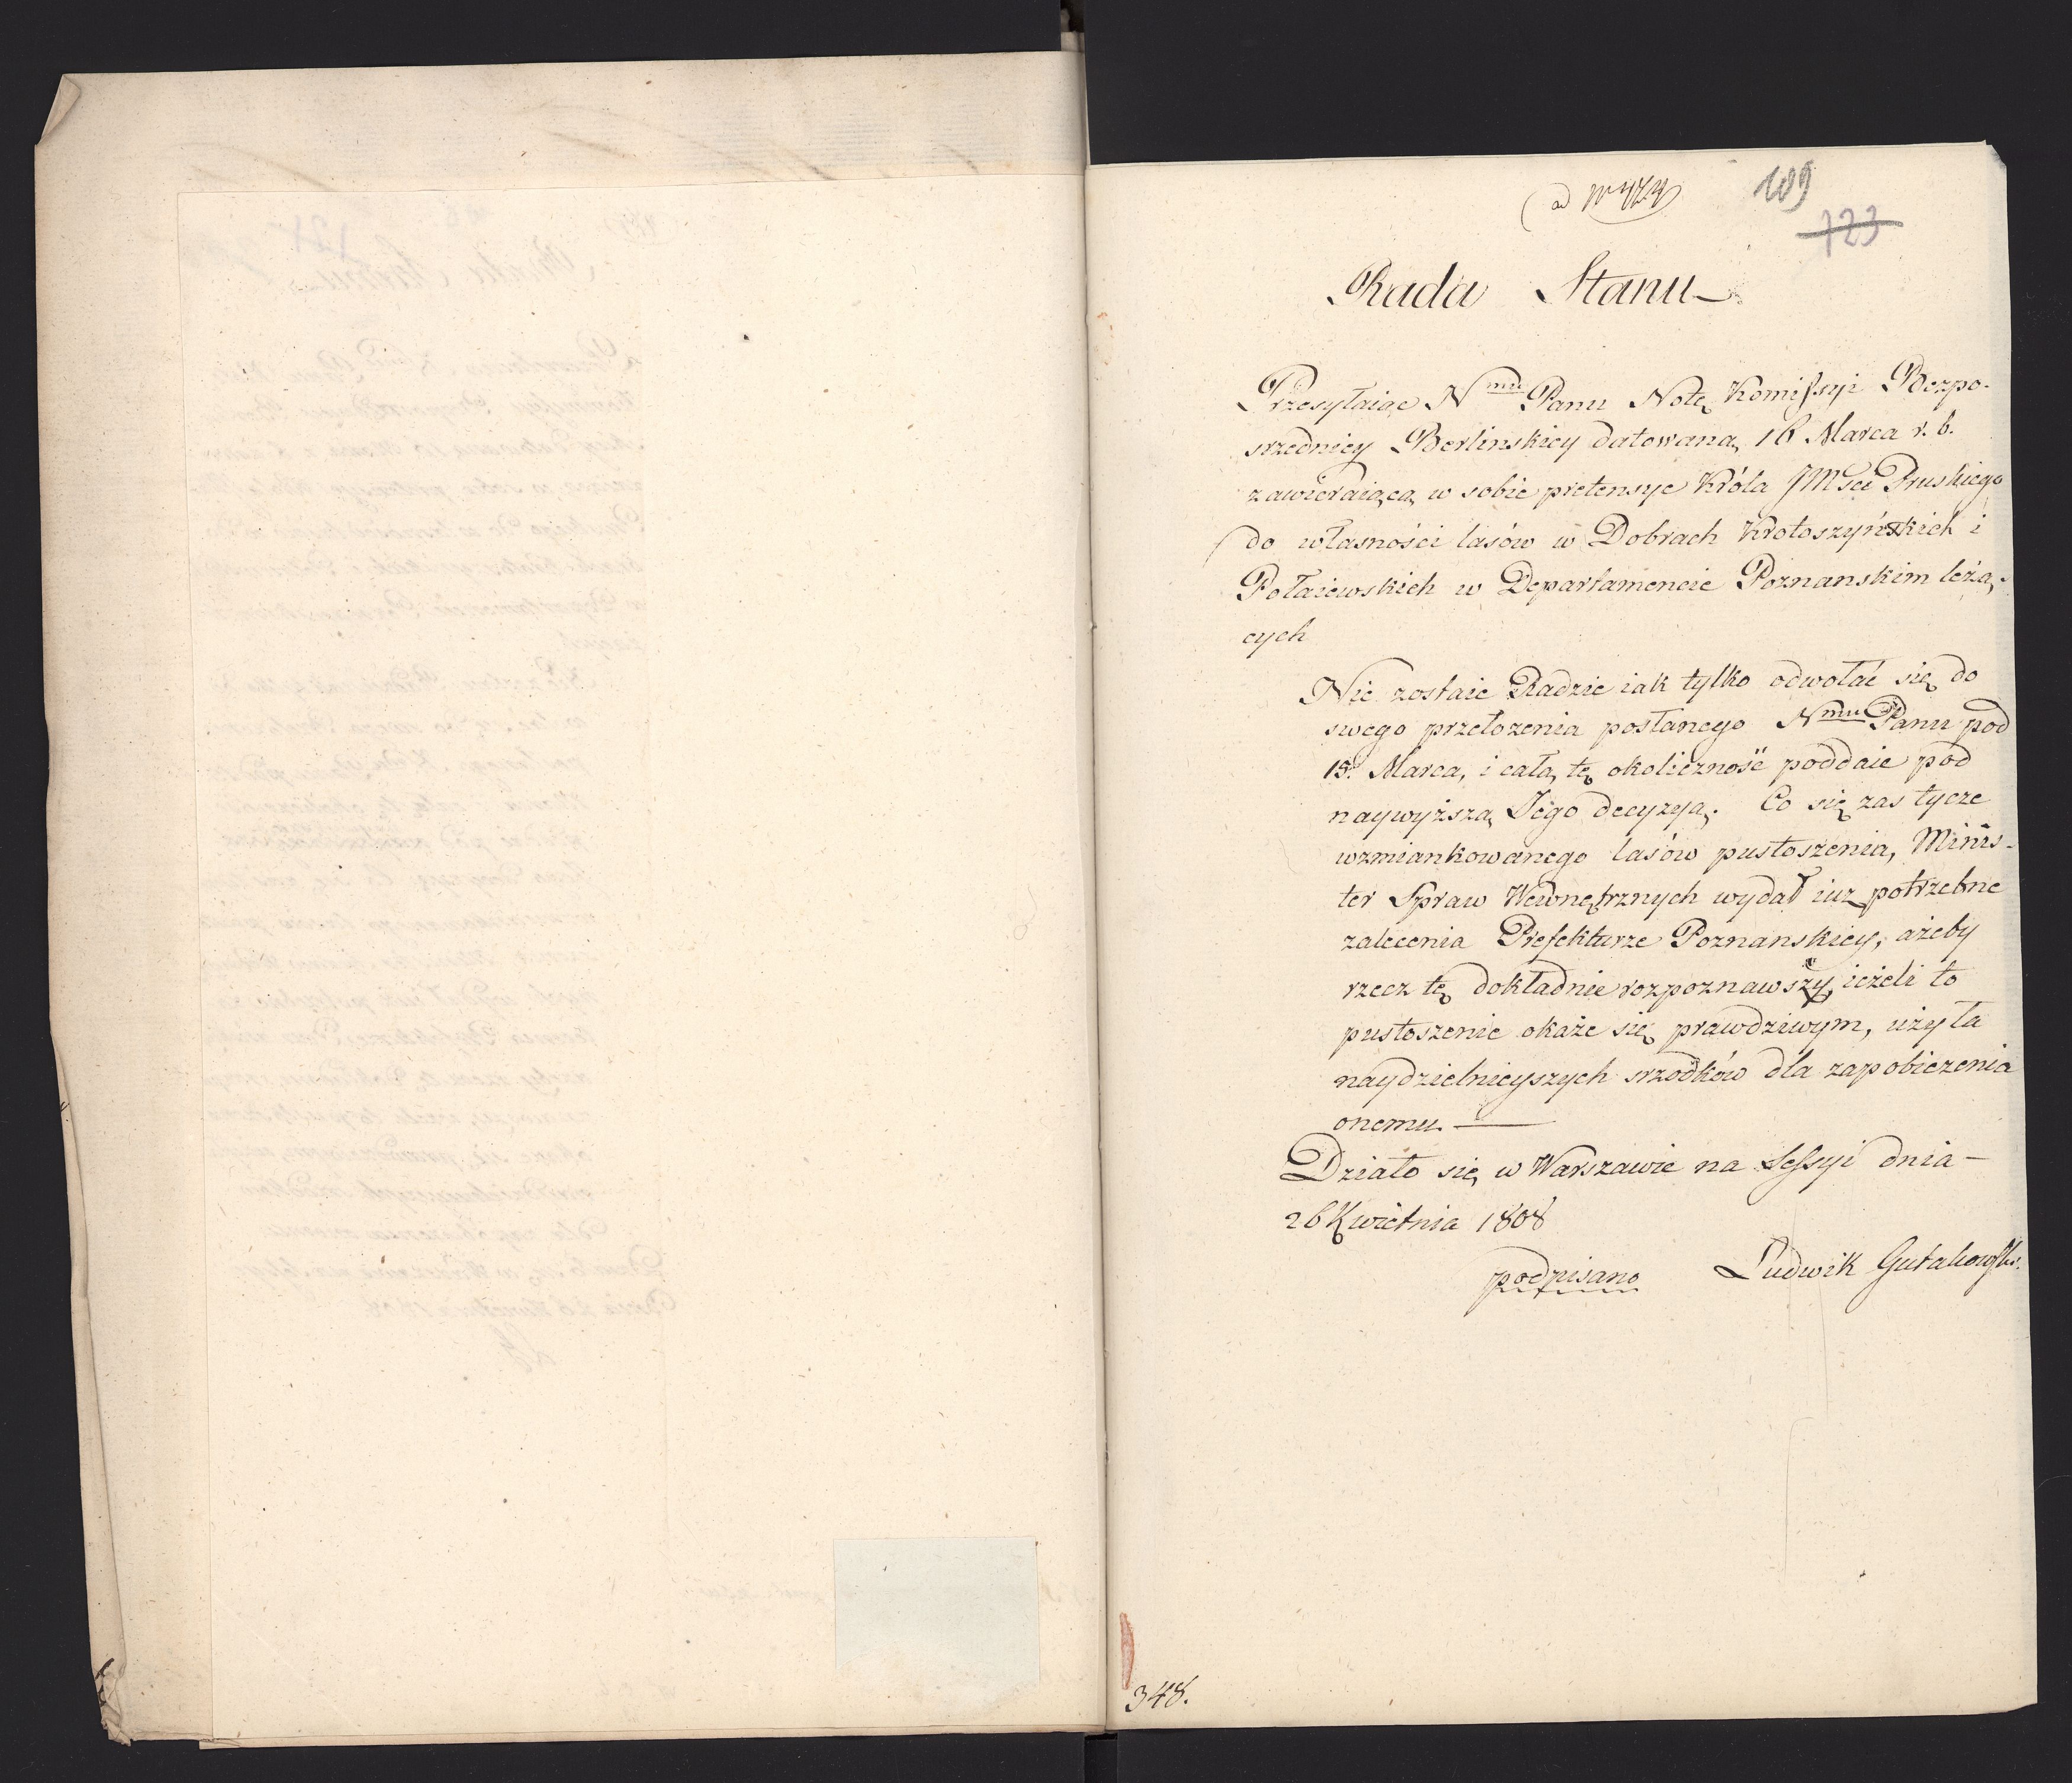 189
123
Rada Stanu
Przesyłaiąc Nmu Panu Notę Komissyi Bezpo-
srzedniey Berlinskiey datowaną 16 Marca r. b.
zawieraiącą w sobie pretensye Króla JMSci Pruskiego
do własności lasów w Dobrach Krotoszyńskich i
Połaiewskich w Departamencie Poznanskim leżą-
cych
Nie zostaie Radzie iak tylko odwołać się do
swego przełożenia posłanego Nmu Panu pod
15. Marca, i całą tę okoliczność poddaie pod
naywyższą Jego decyzyą. Co się zas tycze
wzmiankowanego lasów pustoszenia, Minis-
ter Spraw Wewnętrznych wydał iuz potrzebne
zalecenia Prefekturze Poznanskiey, ażeby
rzecz tę dokładnie rozpoznawszy, ieżeli to
pustoszenie okaże się prawdziwym, użyła
naydzielnieyszych srzodków dla zapobieżenia
onemu. —
Działo się w Warszawie na Sessyi dnia —
26 Kwietnia 1808
podpisano Ludwik Gutakowski.
348.